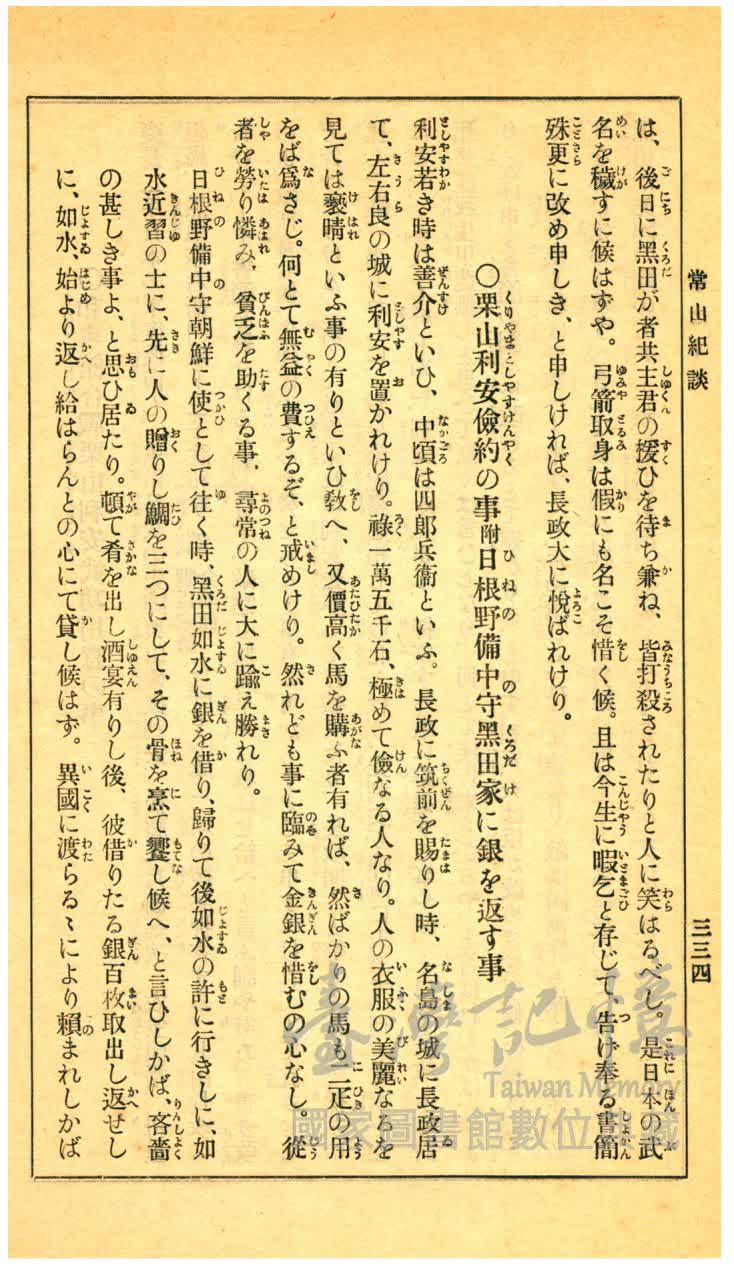 常山紀談
三三四
は、後日に黑田が者共主君の援ひを待ち兼ね、皆打殺されたりと人に笑はるべし。是日本の武
名を穢すに候はずや。弓箭取身は假にも名こそ惜く候。且は今生に暇乞と存じて、告げ奉る書簡
殊更に改め申しき、と申しければ、長政大に悅ばれけり。
〇栗山利安儉約の事附日根野備中守黑田家に銀を返す事
利安若き時は善介といひ、中頃は四郎兵衞といふ。長政に筑前を賜りし時、名島の城に長政居
て、左右良の城に利安を置かれけり。祿一萬五千石、極めて儉なる人なり。人の衣服の美麗なるを
見ては褻晴といふ事の有りといひ敎へ、又價高く馬を購ふ者有れば、然ばかりの馬も二疋の用
をば爲さじ。何とて無益の費するぞ、と戒めけり。然れども事に臨みて金銀を惜むの心なし。從
者を勞り憐み、貧乏を助くる事、尋常の人に大に踰え勝れり。
日根野備中守朝鮮に使として往く時、黑田如水に銀を借り、歸りて後如水の許に行きしに、如
水近習の士に、先に人の贈りし鯛を三つにして、その骨を烹て饗し候へ、と言ひしかば、吝嗇
の甚しき事よ、と思ひ居たり。頓て肴を出し酒宴有りし後、彼借りたる銀百枚取出し返せし
に、如水、始より返し給はらんとの心にて貸し候はず。異國に渡らるゝにより賴まれしかば
臺灣記憶
Taiwan Memory
國家圖書館數位典藏